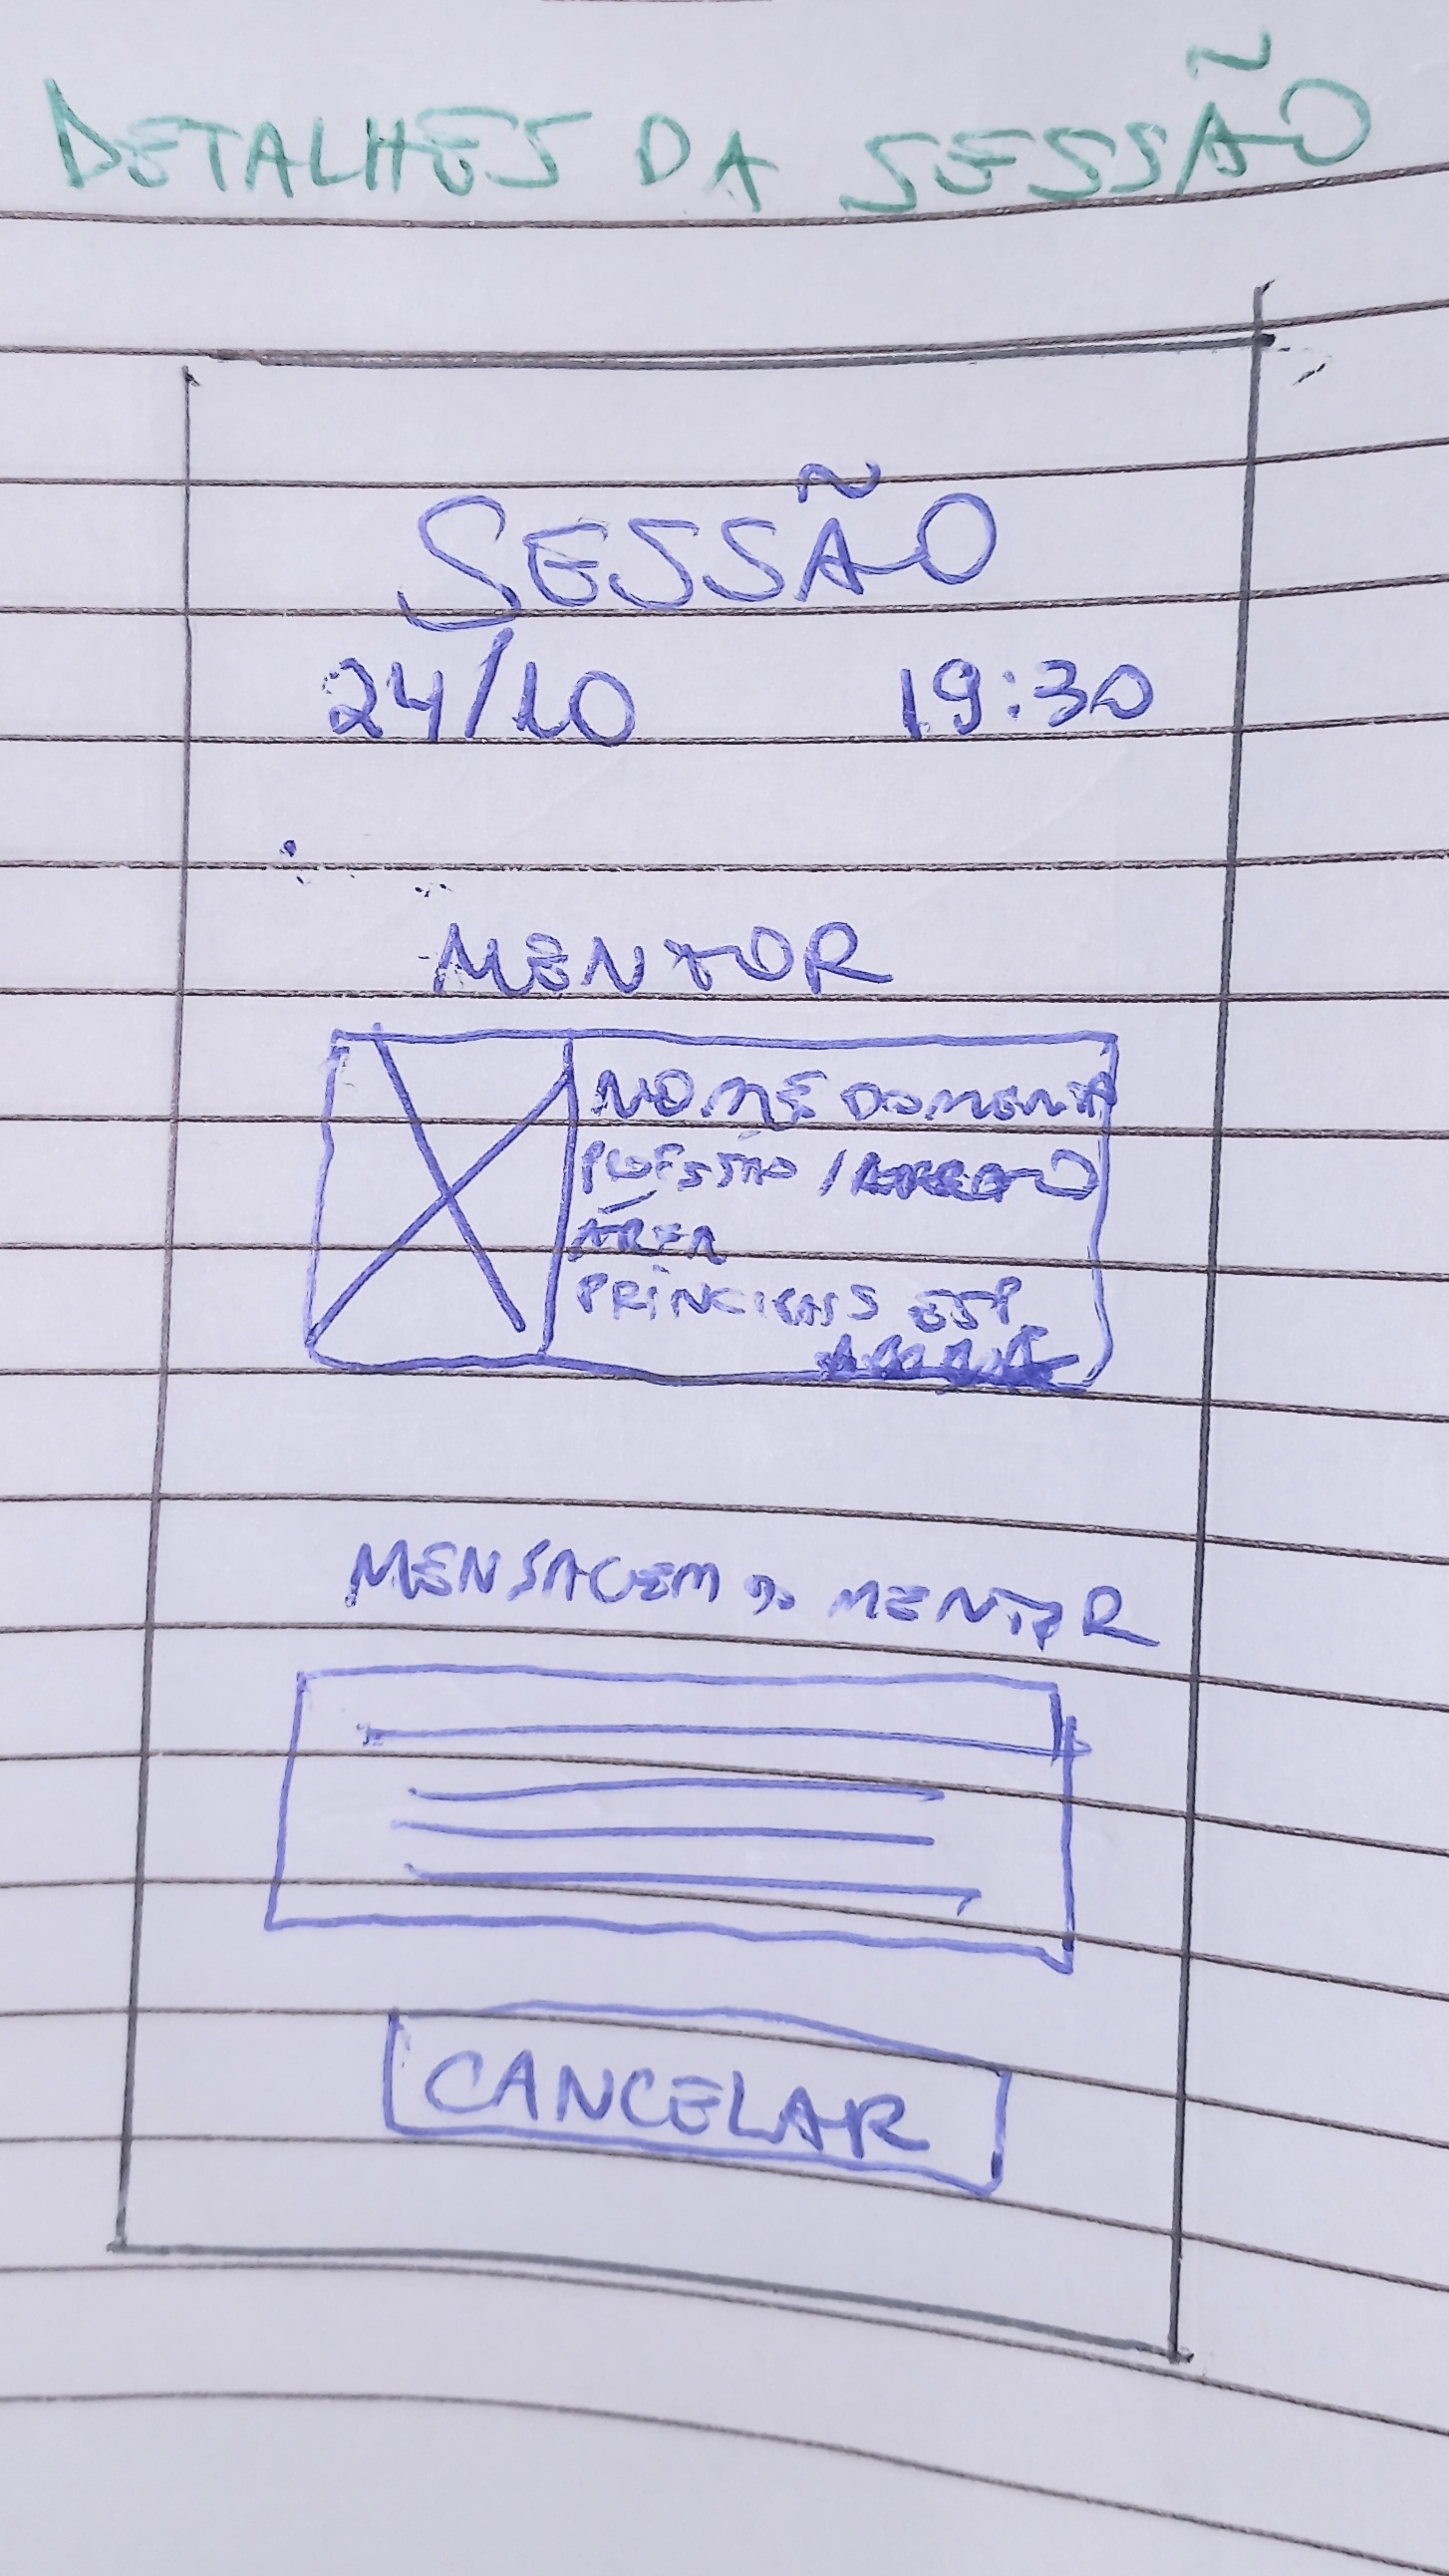 DETALHES DA SESSÃO
SESSÃO
24/10 19:30
MENTOR
NOME DO MENTOR
PROFSSÃO /
ÁREA
PRINCIPAIS ESP.
MENSAGEM DO MENTOR
CANCELAR